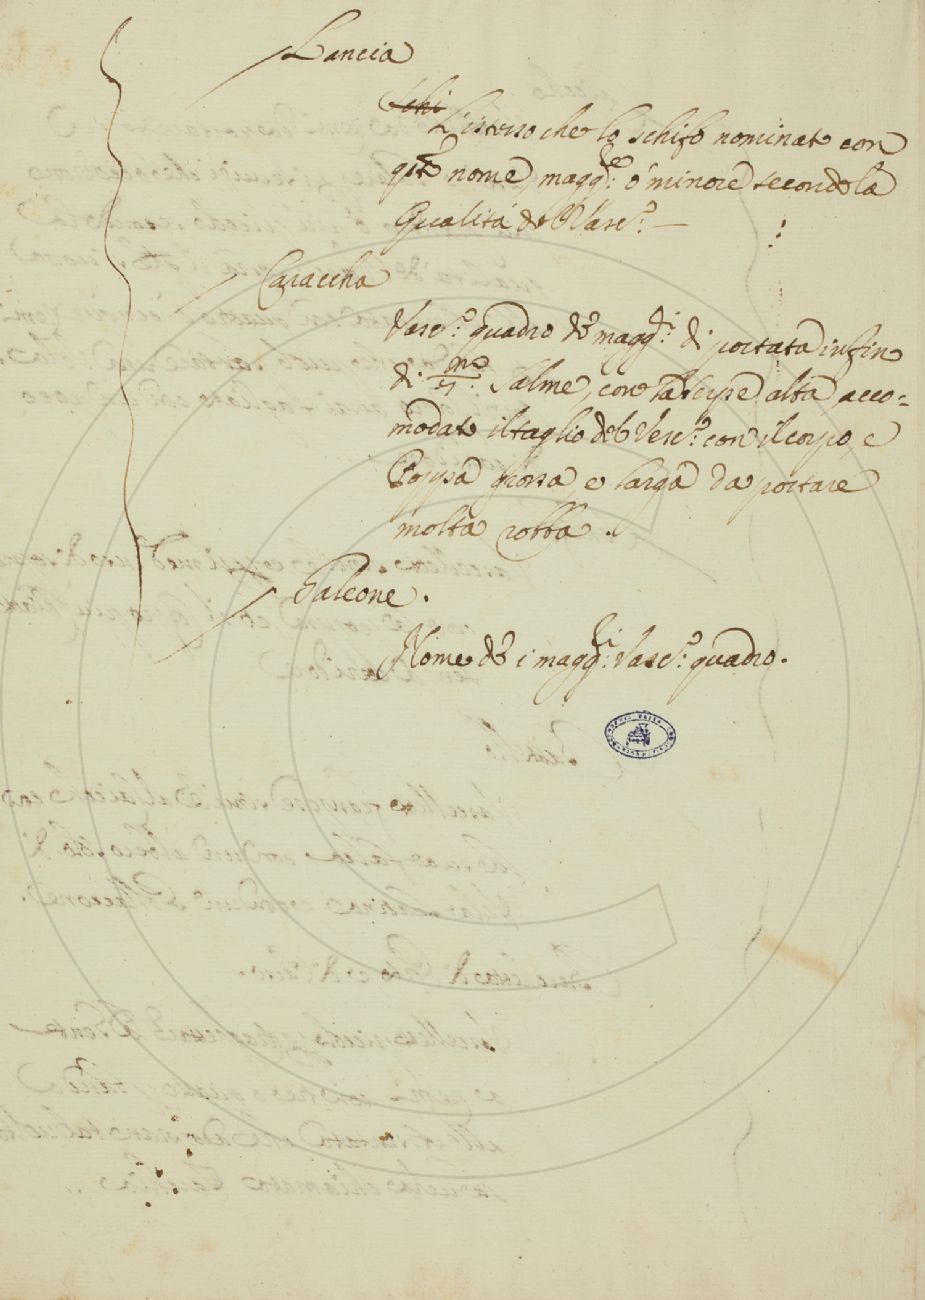 Lancia
L'istesso che lo schifo nominato con
qsto nome, magg.re ó minore secondo la
Qualità del Vasc.o —
Caraccha
Vasc.o quadro de magg.i di portata infin
di Salme, con la alta, acco=
modato il taglio del Vasc.o con il corpo, e
Poppa grossa, e larga da portare
molta robba.
Galeone.
Nome de i magg.ri Vasc.i quadro.